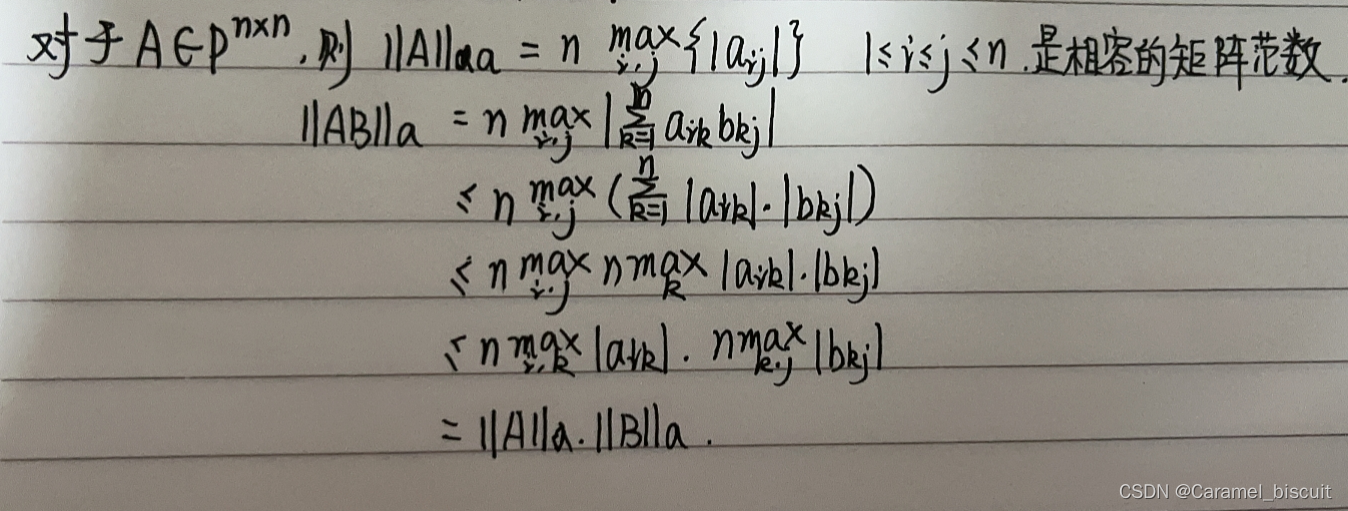 对于A∈P^{n×n},则 ||A||_{αa} = n max_{i,j}{|a_{ij}|} 1≤i≤j≤n.是相容的矩阵范数.
||AB||_a = n max_{i,j} |∑_{k=1}^{n} a_{ik} b_{kj}|
≤ n max_{i,j} (∑_{k=1}^{n} |a_{ik}|·|b_{kj}|)
≤ n max_{i,j} n max_k |a_{ik}|·|b_{kj}|
≤ n max_{i,k} |a_{ik}| · n max_{k,j} |b_{kj}|
= ||A||_a · ||B||_a .
CSDN @Caramel_biscuit